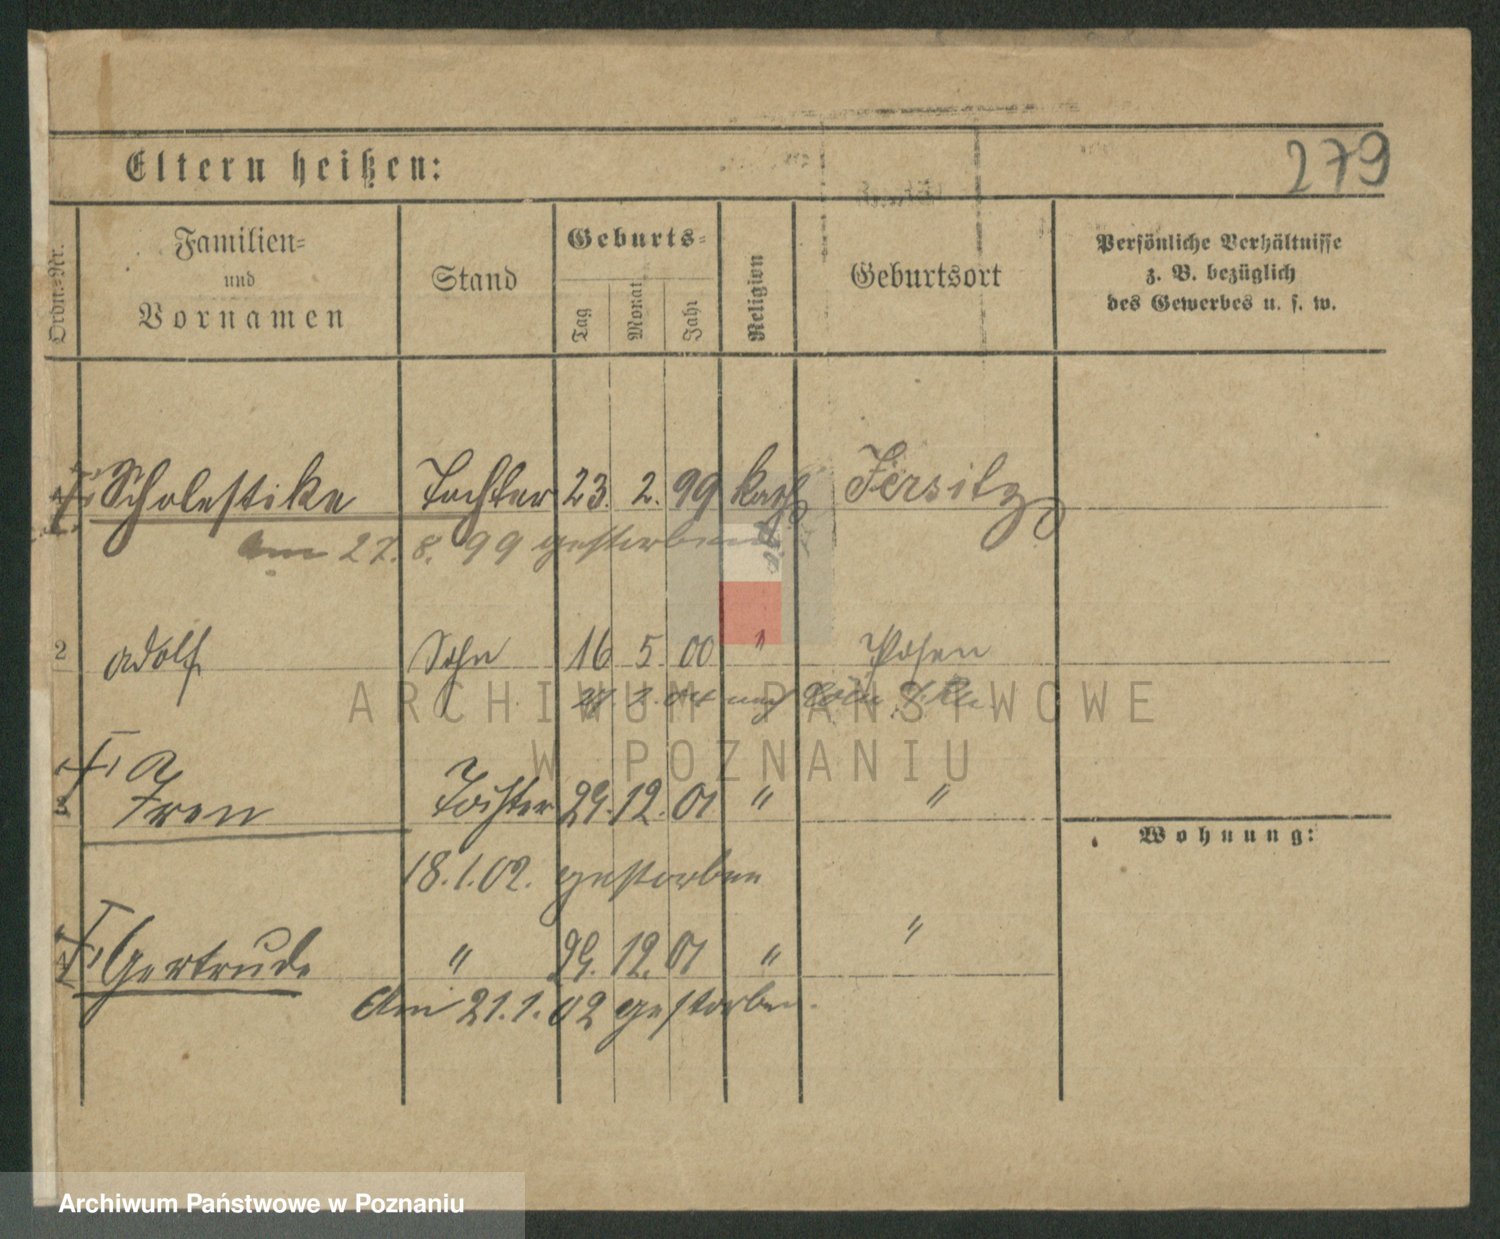 Eltern heißen:
279
Ordn.-Nr.
Familien-
und
Vornamen
Stand
Geburts-
Tag
Monat
Jahr
Religion
Geburtsort
Persönliche Verhältnisse
z. B. bezüglich
des Gewerbes u. s. w.
Scholastika Tochter 23. 2. 99 kath Jersitz
Am 27. 8. 99 gestorben
2 Adolf Sohn 16 5 00 " Posen
nach
ARCHIWUM PAŃSTWOWE
W POZNANIU
3 Iren Tochter 29. 12. 01 " "
Wohnung:
18. 1. 02. gestorben
4 Gertrude " 29. 12. 01 " "
Am 21. 1. 02 gestorben.
Archiwum Państwowe w Poznaniu